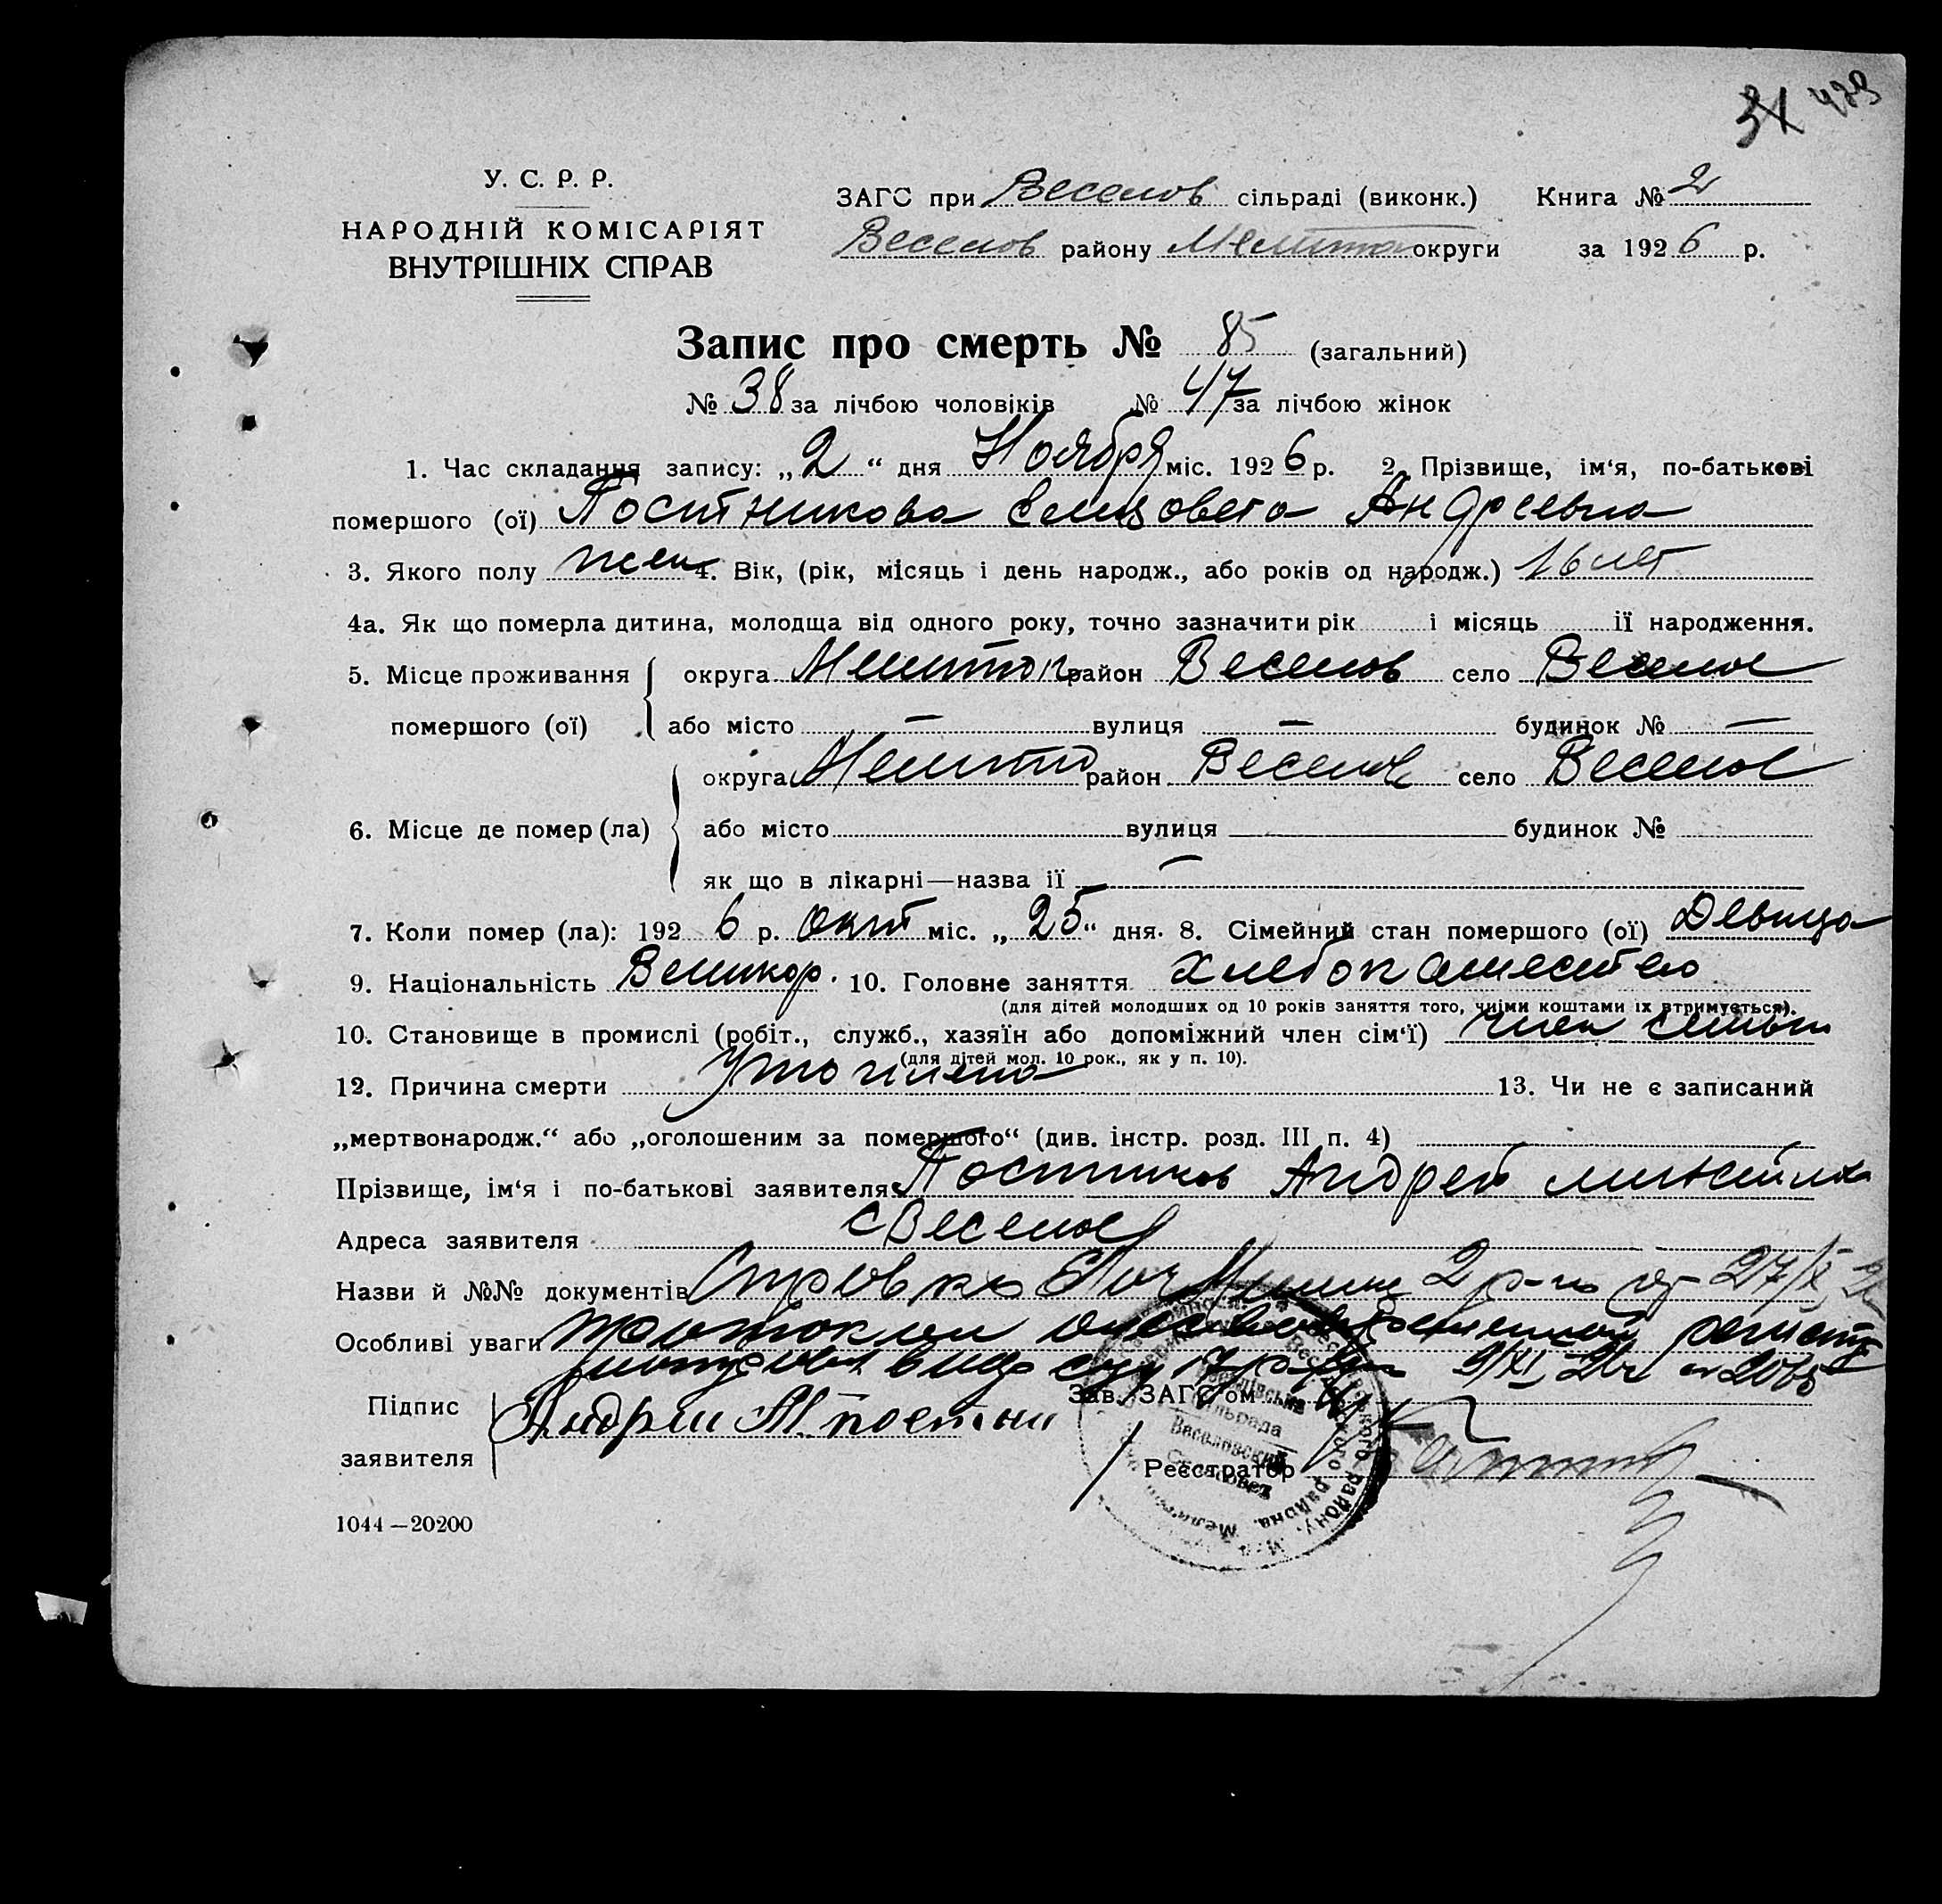 31 429
У. С. Р. Р.
НАРОДНІЙ КОМІСАРІЯТ
ВНУТРІШНІХ СПРАВ
ЗАГС при Веселов сільраді (виконк.) Книга № 2
Веселов району Мелито округи за 1926 р.
Запис про смерть № 85 (загальний)
№ 38 за лічбою чоловіків № 47 за лічбою жінок
1. Час складання запису: „2“ дня Ноября міс. 1926 р. 2. Прізвище, ім‘я, по-батькові
помершого (ої) Постникова Елизовета Андреевна
3. Якого полу жен 4. Вік, (рік, місяць і день народж., або років од народж.) 16 лет
4а. Як що померла дитина, молодща від одного року, точно зазначити рік і місяць її народження.
5. Місце проживання округа Мелитоп район Веселов село Веселое
помершого (ої) або місто — вулиця — будинок № —
округа Мелитоп район Веселов село Веселое
6. Місце де помер (ла) або місто вулиця будинок №
як що в лікарні—назва її —
7. Коли помер (ла): 1926 р. Окт міс. „25“ дня. 8. Сімейний стан помершого (ої) Девица
9. Національність Великор. 10. Головне заняття Хлебопашество
(для дітей молодших од 10 років заняття того, чиїми коштами їх втримується).
10. Становище в промислі (робіт., служб., хазяїн або допоміжний член сім‘ї) член семьи
(для дітей мол. 10 рок., як у п. 10).
12. Причина смерти 13. Чи не є записаний
„мертвонародж.“ або „оголошеним за помершого“ (див. інстр. розд. III п. 4)
Прізвище, ім‘я і по-батькові заявителя Постников Андрей
Адреса заявителя с Веселое
Назви й №№ документів 2 р-на от 27/X
Особливі уваги
Підпис Андрей М.
заявителя
Зав. ЗАГС‘ом
Реєстратор
1044—20200